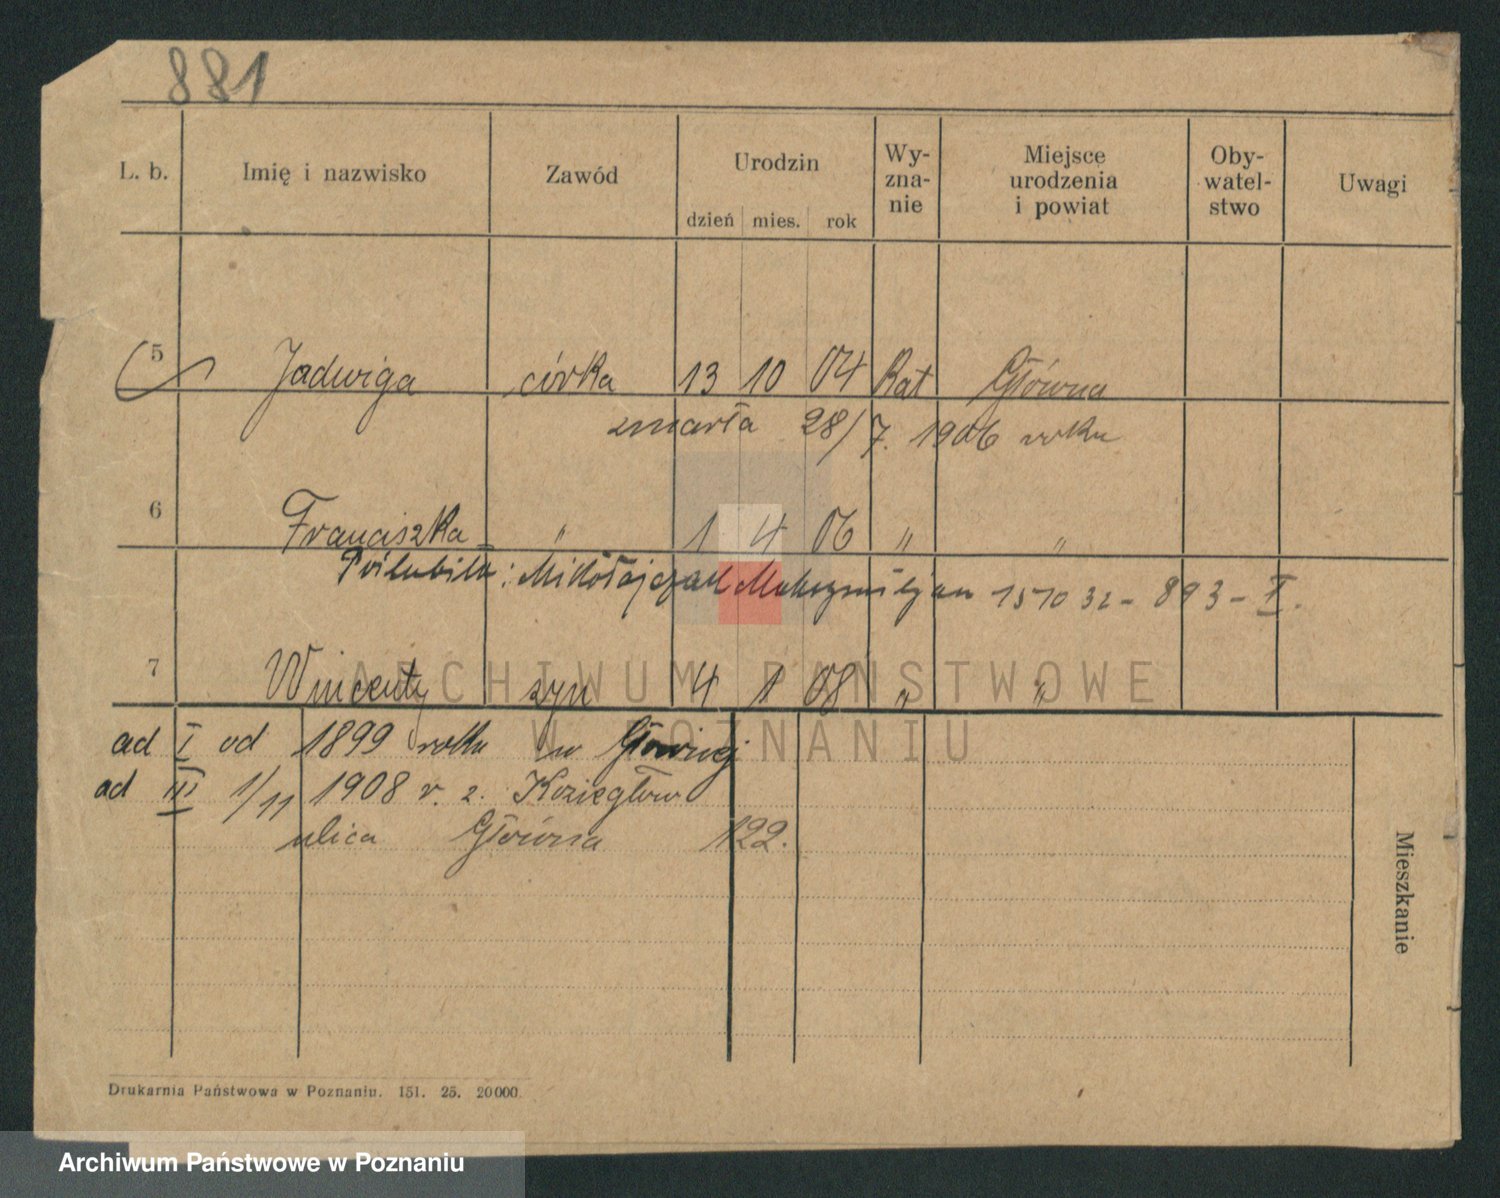 881
L. b. Imię i nazwisko Zawód Urodzin Wy-zna-nie Miejsce urodzenia i powiat Oby-watel-stwo Uwagi
dzień mies. rok
5 Jadwiga córka 13 10 04 Kat Główna
zmarła 28/7. 1906 roku
6 Franciszka " 1 4 06 " "
Poślubiła: Mikołajczak Maksymiljan 15 10 32 - 893 - X.
7 Wincenty syn 4 1 08 " "
ARCHIWUM PAŃSTWOWE
W POZNANIU
ad I od 1899 roku w Głównej
ad III 1/11 1908 r. z. Koziegłow
ulica Główna 122.
Mieszkanie
Drukarnia Państwowa w Poznaniu. 151. 25. 20000.
Archiwum Państwowe w Poznaniu